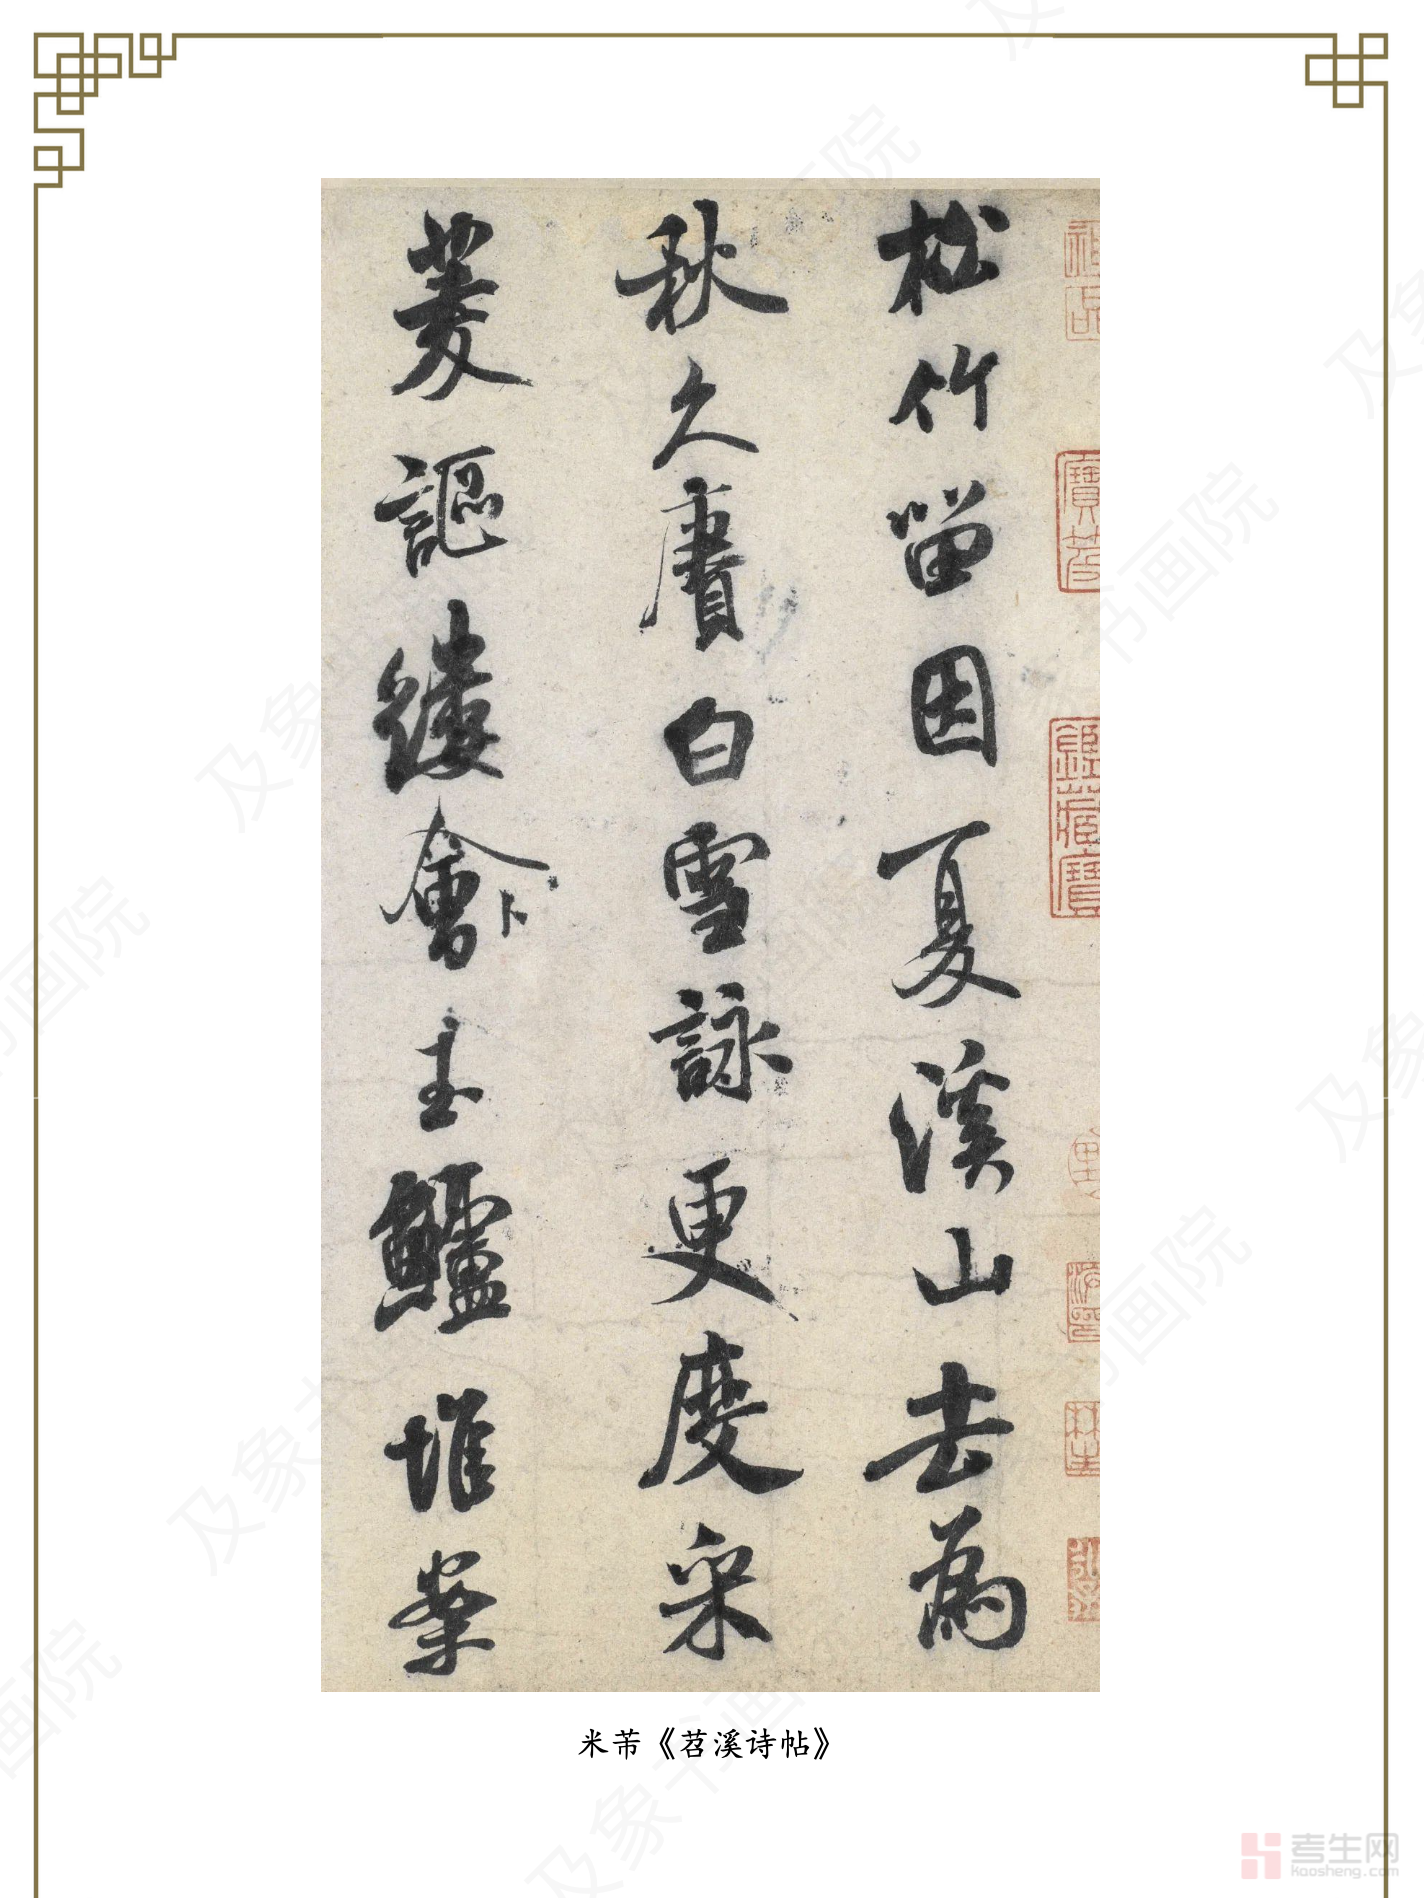 松竹留因夏溪山去為
秋久賡白雪詠更度采
菱謳縷會卜玉鱸堆案
米芾《苕溪诗帖》
及象书画院
考生网
kaosheng.com